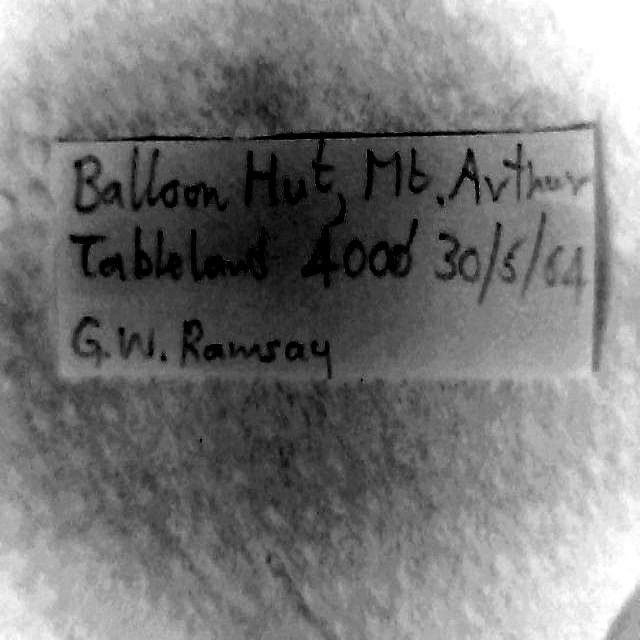 Balloon Hut, Mt. Arthur
Tableland 4000' 30/5/64
G.W. Ramsay